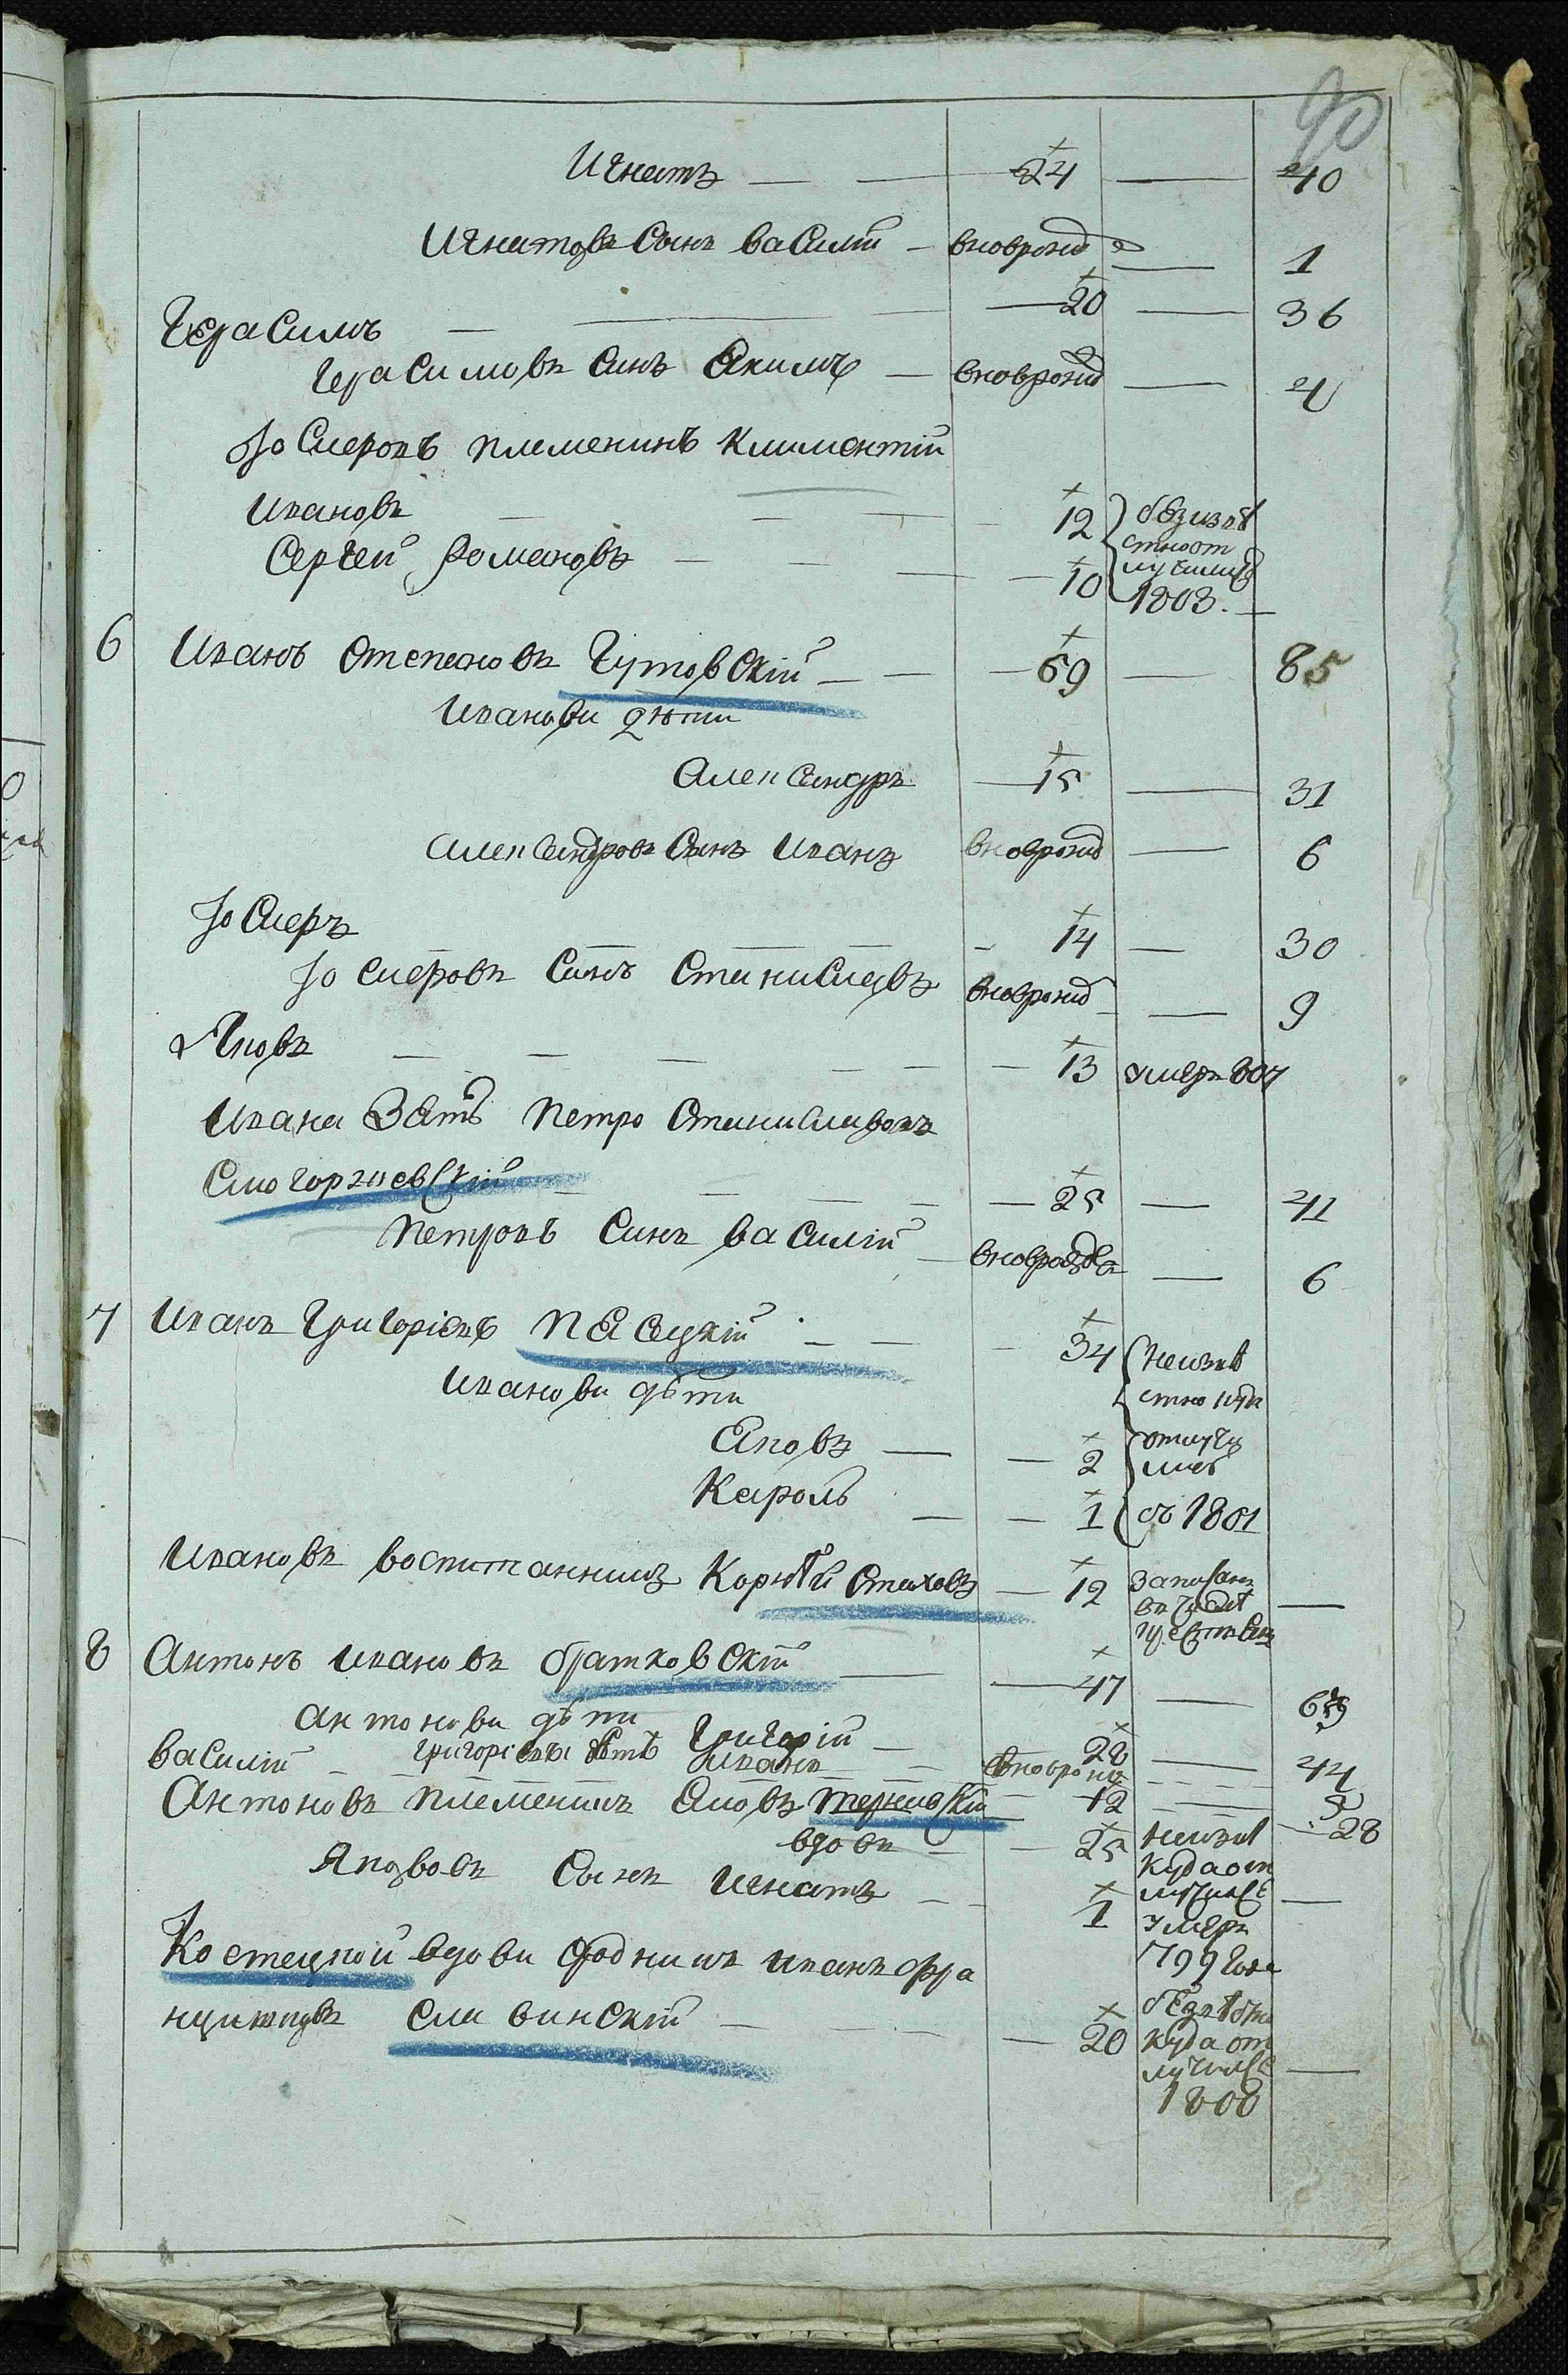 90
Игнатъ — 24 — 40
Игнатовъ Сынъ василій — вноврожд — 1
Герасимъ — 20 — 36
Герасимовъ Синъ Якимъ — вноврожд — 4
Іосиеровъ племенинъ Климентій
Ивановъ — 12 безизвѣ
стно от
Сергей Романовъ — 10 лучились
1808. —
6 Иванъ Степановъ Гутовскій — 69 — 85
Иванови дѣти
Александръ — 15 — 31
Александровъ Сынъ Иванъ вноврожд — 6
Іосиеръ — 14 — 30
Іосиеровъ Синъ Станиславъ вноврожд — 9
Яковъ — 13 умеръ 807
Ивана Зять Петро Станиславовъ
Смогоржевскій — 25 — 41
Петровъ Синъ василій — вноврожд — 6
7 Иванъ Григоріевъ Песецкій — 34 Неизвѣ
Иванови дѣти стно куда
Яковъ — 2 отлучи
лись
Кароль — 1 съ 1801
Ивановъ воспитанникъ Корнѣй Стаховъ — 12 записанъ
въ числѣ —
крестьянъ
8 Антонъ Ивановъ братковскій — 47 — 63
Антонови дѣти Григорій — 28 — 44
василій — григоріеви дѣти Иванъ — вноврожд — 9
Антоновъ племенникъ Яковъ терновскій — 12 — 28
вдовъ — 25 неизвѣ
куда от
Яковъвъ Сынъ Игнатъ — 1 лучился —
умеръ
799 года
Костецкой вдови сродникъ иванъ фра
нцишковъ Славинскій — 20 безвѣстно
куда от
лучился —
1808